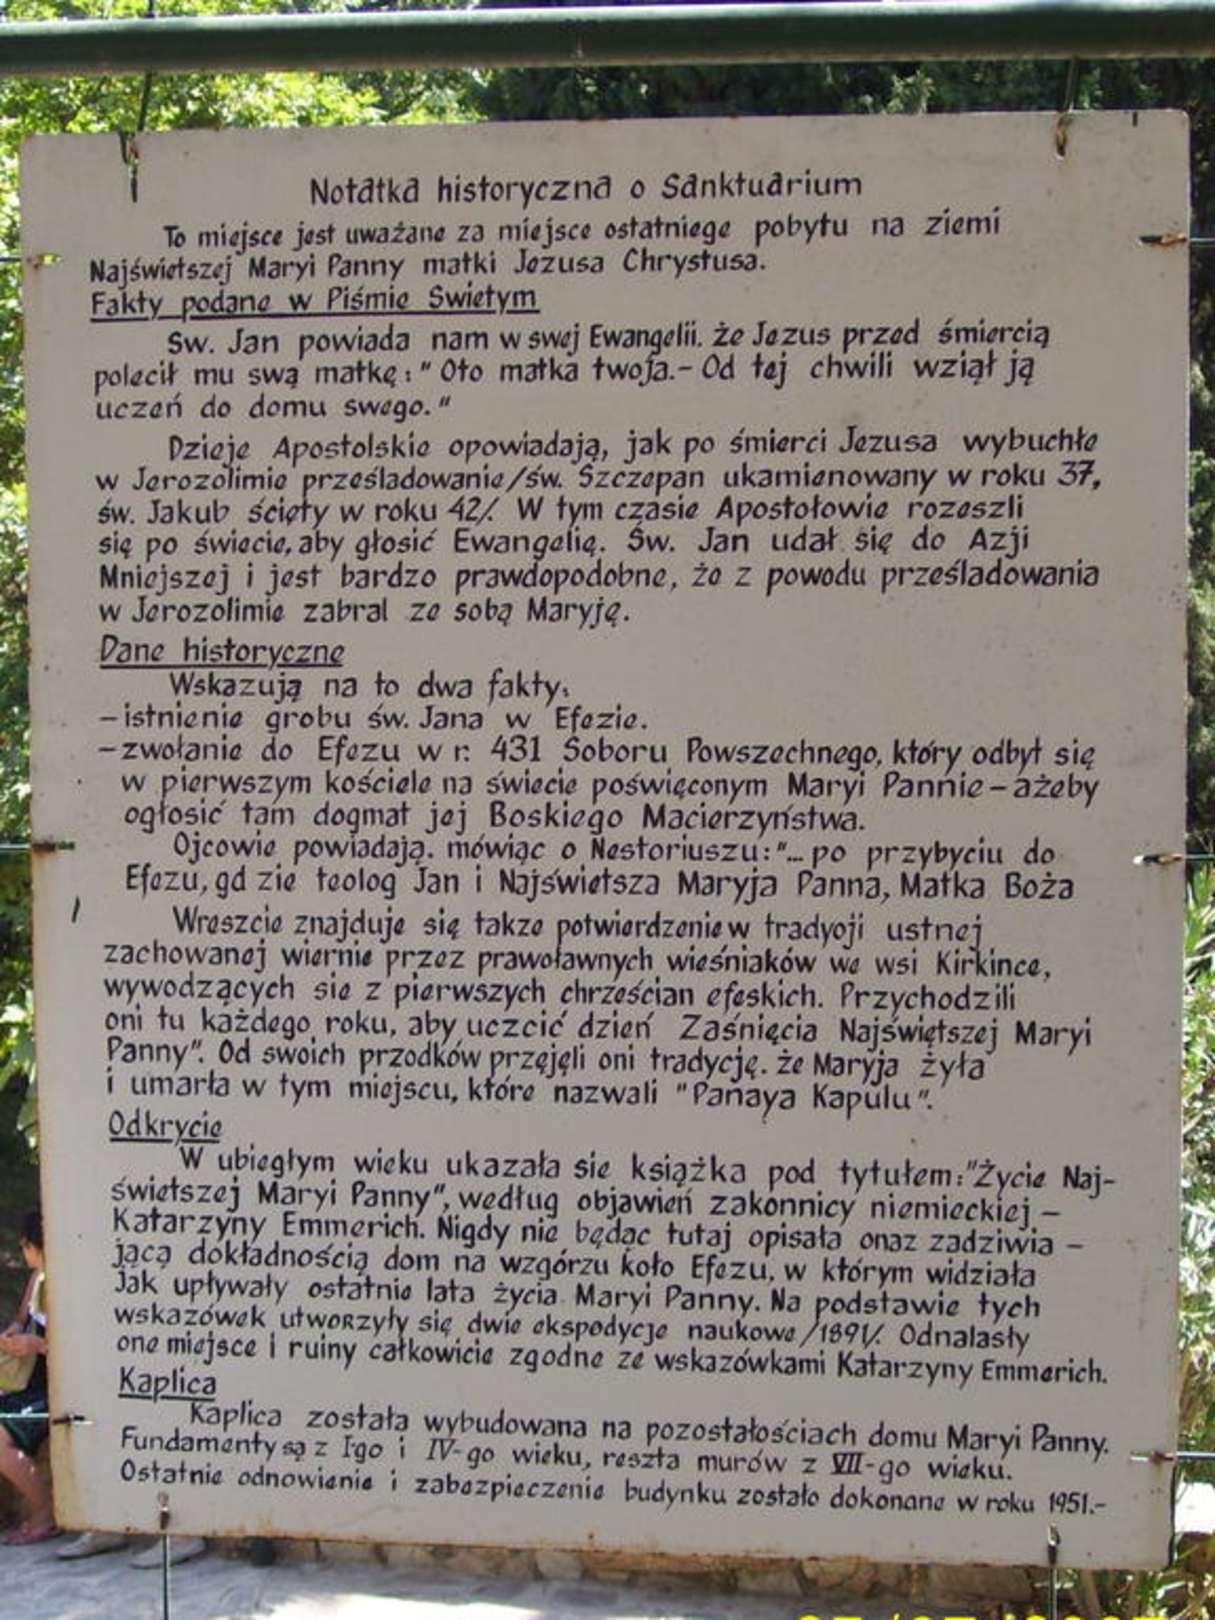 Notatka historyczna o Sanktuarium
To miejsce jest uważane za miejsce ostatniege pobytu na ziemi
Najświetszej Maryi Panny matki Jezusa Chrystusa.
Fakty podane w Piśmie Swietym
Sw. Jan powiada nam w swej Ewangelii. że Jezus przed śmiercią
polecił mu swą matkę: " Oto matka twoja.- Od tej chwili wziął ją
uczeń do domu swego."
Dzieje Apostolskie opowiadają, jak po śmierci Jezusa wybuchłe
w Jerozolimie prześladowanie/św. Szczepan ukamienowany w roku 37,
św. Jakub ścięty w roku 42/. W tym czasie Apostołowie rozeszli
się po świecie, aby głosić Ewangelię. Św. Jan udał się do Azji
Mniejszej i jest bardzo prawdopodobne, że z powodu prześladowania
w Jerozolimie zabral ze sobą Maryję.
Dane historyczne
Wskazują na to dwa fakty:
- istnienie grobu św. Jana w Efezie.
- zwołanie do Efezu w r. 431 Soboru Powszechnego, który odbył się
w pierwszym kościele na świecie poświęconym Maryi Pannie - ażeby
ogłosić tam dogmat jej Boskiego Macierzyństwa.
Ojcowie powiadają. mówiąc o Nestoriuszu: "... po przybyciu do
Efezu, gd zie teolog Jan i Najświetsza Maryja Panna, Matka Boża
Wreszcie znajduje się takze potwierdzenie w tradyoji ustnej
zachowanej wiernie przez prawoławnych wieśniaków we wsi Kirkince,
wywodzących sie z pierwszych chrześcian efeskich. Przychodzili
oni tu każdego roku, aby uczcić dzień Zaśnięcia Najświętszej Maryi
Panny". Od swoich przodków przejęli oni tradycję. że Maryja żyła
i umarła w tym miejscu, które nazwali "Panaya Kapulu".
Odkrycie
W ubiegłym wieku ukazała sie książka pod tytułem: "Życie Naj-
świetszej Maryi Panny", według objawień zakonnicy niemieckiej -
Katarzyny Emmerich. Nigdy nie będąc tutaj opisała onaz zadziwia -
jącą dokładnością dom na wzgórzu koło Efezu, w którym widziała
Jak upływały ostatnie lata życia Maryi Panny. Na podstawie tych
wskazówek utworzyły się dwie ekspedycje naukowe /1891/. Odnalasły
one miejsce i ruiny całkowicie zgodne ze wskazówkami Katarzyny Emmerich.
Kaplica
Kaplica została wybudowana na pozostałościach domu Maryi Panny.
Fundamenty są z I-go i IV-go wieku, reszta murów z VII-go wieku.
Ostatnie odnowienie i zabezpieczenie budynku zostało dokonane w roku 1951.-